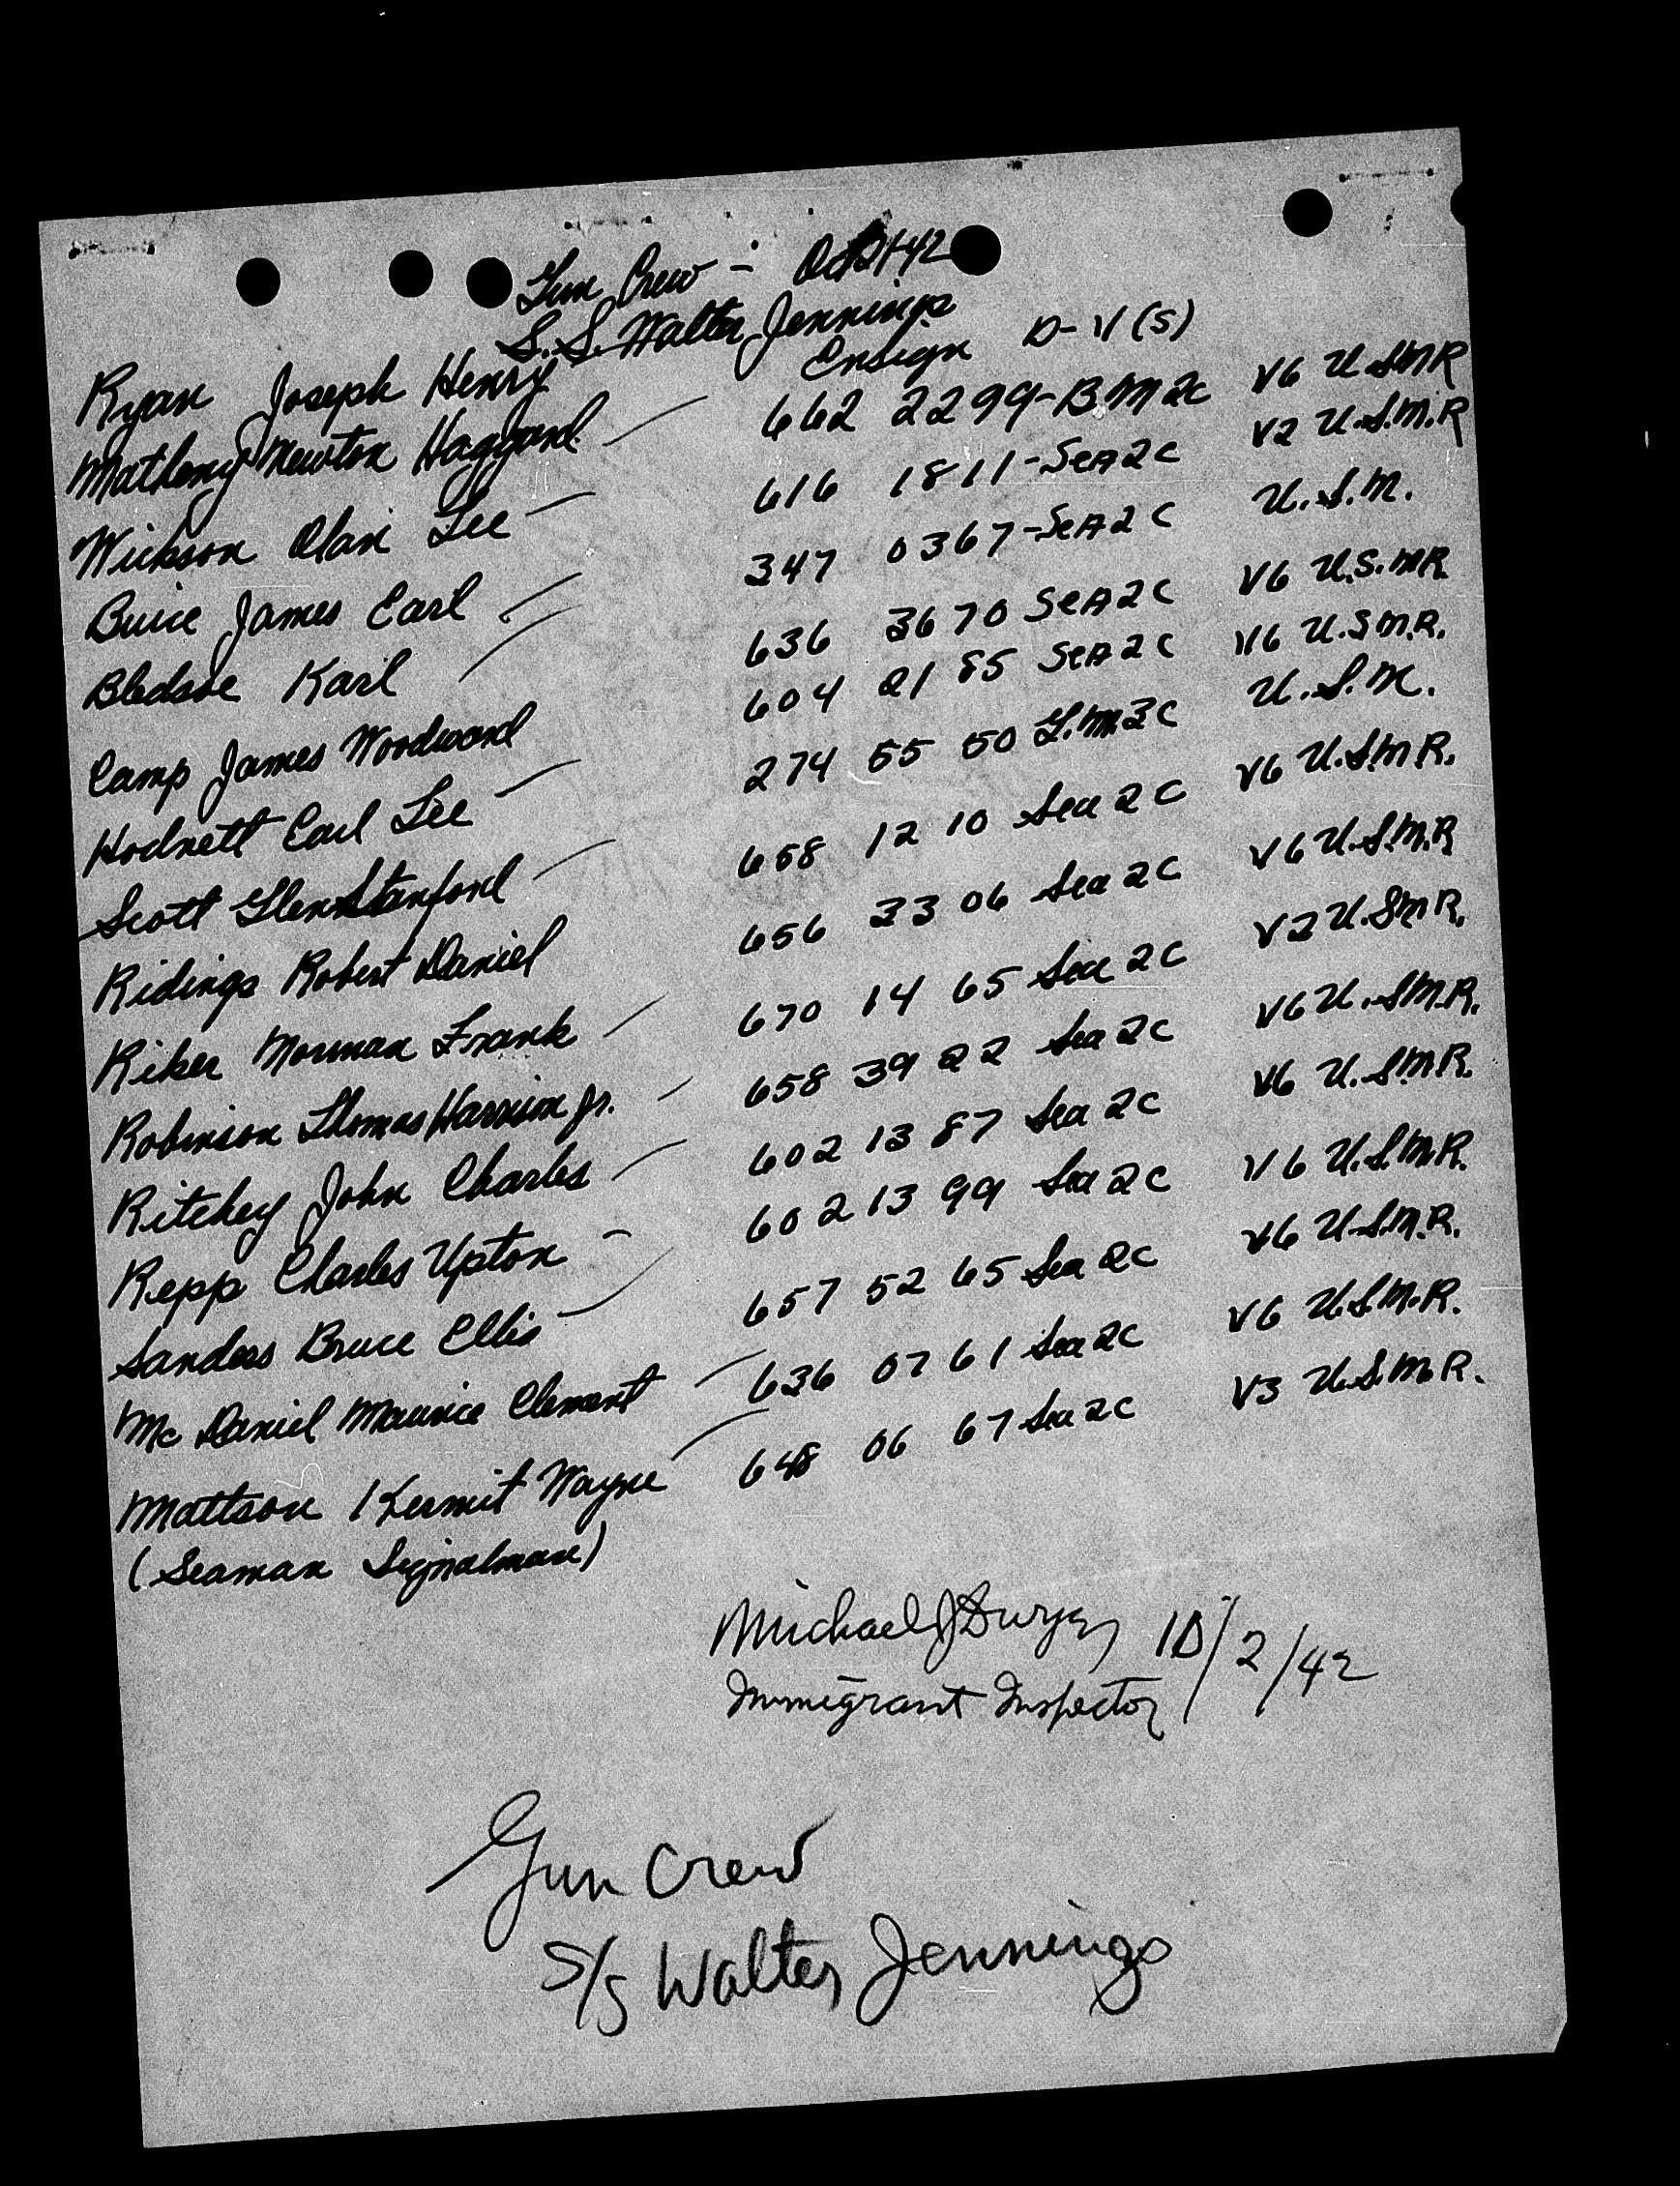 Gun Crew - Oct 2/42
S.S. Walter Jennings
Ryan Joseph Henry Ensign D-V(S)
Matheny Newton Haggard 662 2299-BM2c V6 U.S.N.R
Wickson Olan Lee 616 1811-Sea2c V2 U.S.N.R
Buice James Earl 347 0367-Sea2c U.S.N.
Bledsoe Karl 636 3670 Sea2c V6 U.S.N.R.
Camp James Woodward 604 21 85 Sea2c V6 U.S.N.R.
Hodnett Earl Lee 274 55 50 G.M.3c U.S.N.
Scott Glenn Stanford 658 12 10 Sea 2c V6 U.S.N.R.
Ridings Robert Daniel 656 33 06 Sea 2c V6 U.S.N.R
Riker Norman Frank 670 14 65 Sea 2c V2 U.S.N.R.
Robinson Thomas Harrison Jr. 658 39 22 Sea 2c V6 U.S.N.R.
Ritchey John Charles 602 13 87 Sea 2c V6 U.S.N.R.
Repp Charles Upton 602 13 99 Sea 2c V6 U.S.N.R.
Sanders Bruce Ellis 657 52 65 Sea 2c V6 U.S.N.R.
Mc Daniel Maurice Clement 636 07 61 Sea 2c V6 U.S.N.R.
Mattson Kermit Wayne 648 06 67 Sea 2c V3 U.S.N.R.
(Seaman Signalman)
Michael J Dwyer 10/2/42
Immigrant Inspector
Gun Crew
S/S Walter Jennings